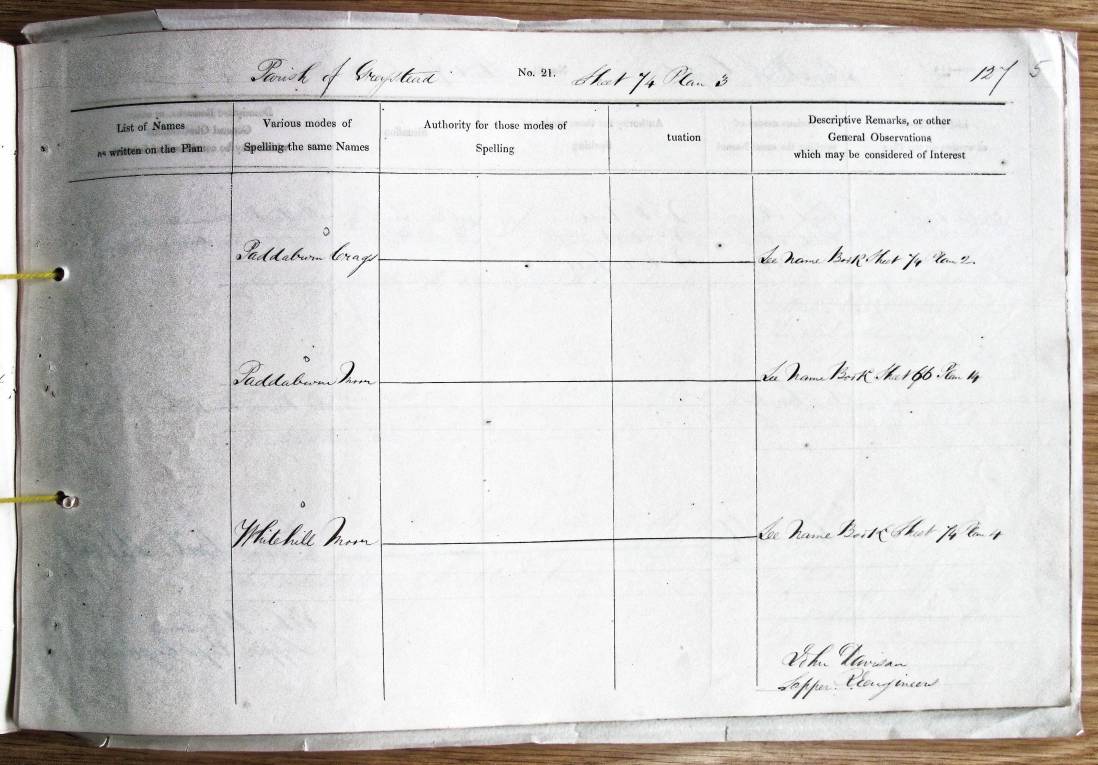 Parish of Greystead No. 21. Sheet 74 Plan 3 127 5
List of Names
as written on the Plan
Various modes of
Spelling the same Names
Authority for those modes of
Spelling
tuation
Descriptive Remarks, or other
General Observations
which may be considered of Interest
Paddaburn Crags See Name Book Sheet 74 Plan 2
Paddaburn Moor See Name Book Sheet 66 Plan 14
Whitehill Moor See Name Book Sheet 74 Plan 4
John Davison
Sapper R. Engineers